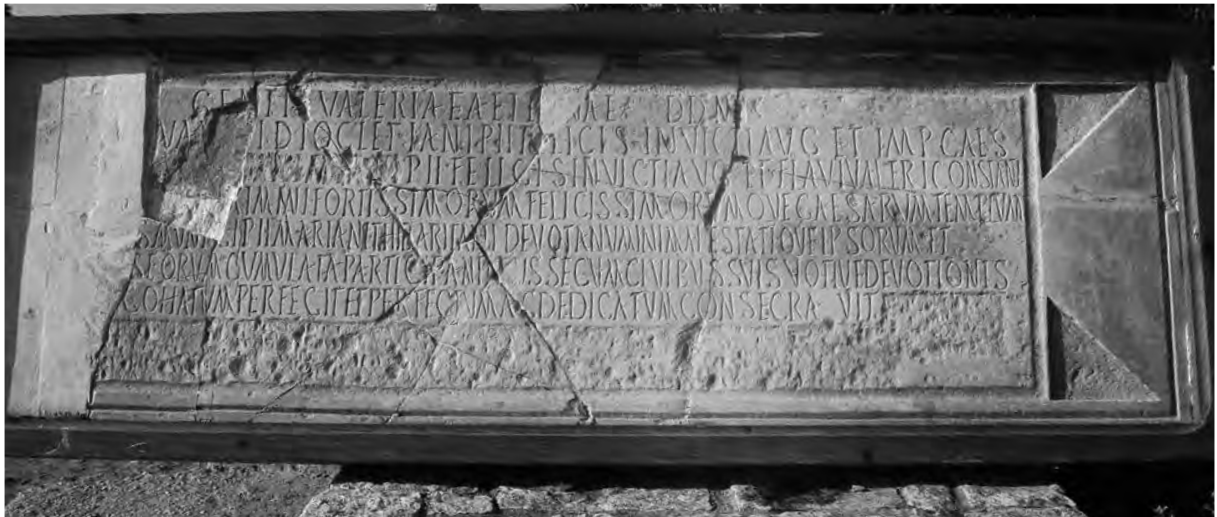 VALERIAE AE DD N
DIOCLETIANI PII FELICIS INVICTI AVG ET IMP CAES
PII FELICIS INVICTI AVG ET FLAVI VALERI CONSTANTI
FORTISSIMORVM FELICISSIMORVMQVE CAESARVM TEMPLVM
MVNICIPII MARIANI THIBARITANI DEVOTA NVMINI MAIESTATIQVE IPSORVM
EORVM CVMVLATA SECVM CIVIBVS SVIS VOTIVE DEVOTIONIS
COHATVM PERFECIT ET PERFECTVM AC DEDICATVM CONSECRAVIT